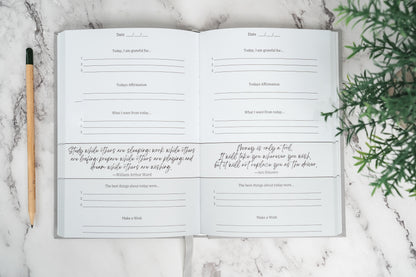 Date ___/___/___
Today, I am grateful for...
1
2
3
Today's Affirmation
What I want from today...
1
2
3
Study while others are sleeping; work while others
are loafing; prepare while others are playing; and
dream while others are wishing.
—William Arthur Ward
The best things about today were...
1
2
3
Make a Wish
Date ___/___/___
Today, I am grateful for...
1
2
3
Today's Affirmation
What I want from today...
1
2
3
Money is only a tool.
It will take you wherever you wish,
but it will not replace you as the driver.
—Ayn Rand
The best things about today were...
1
2
3
Make a Wish